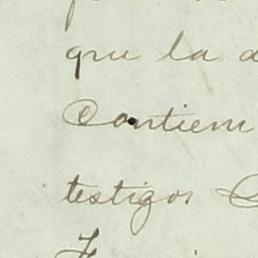 que la
Contiene
testigos